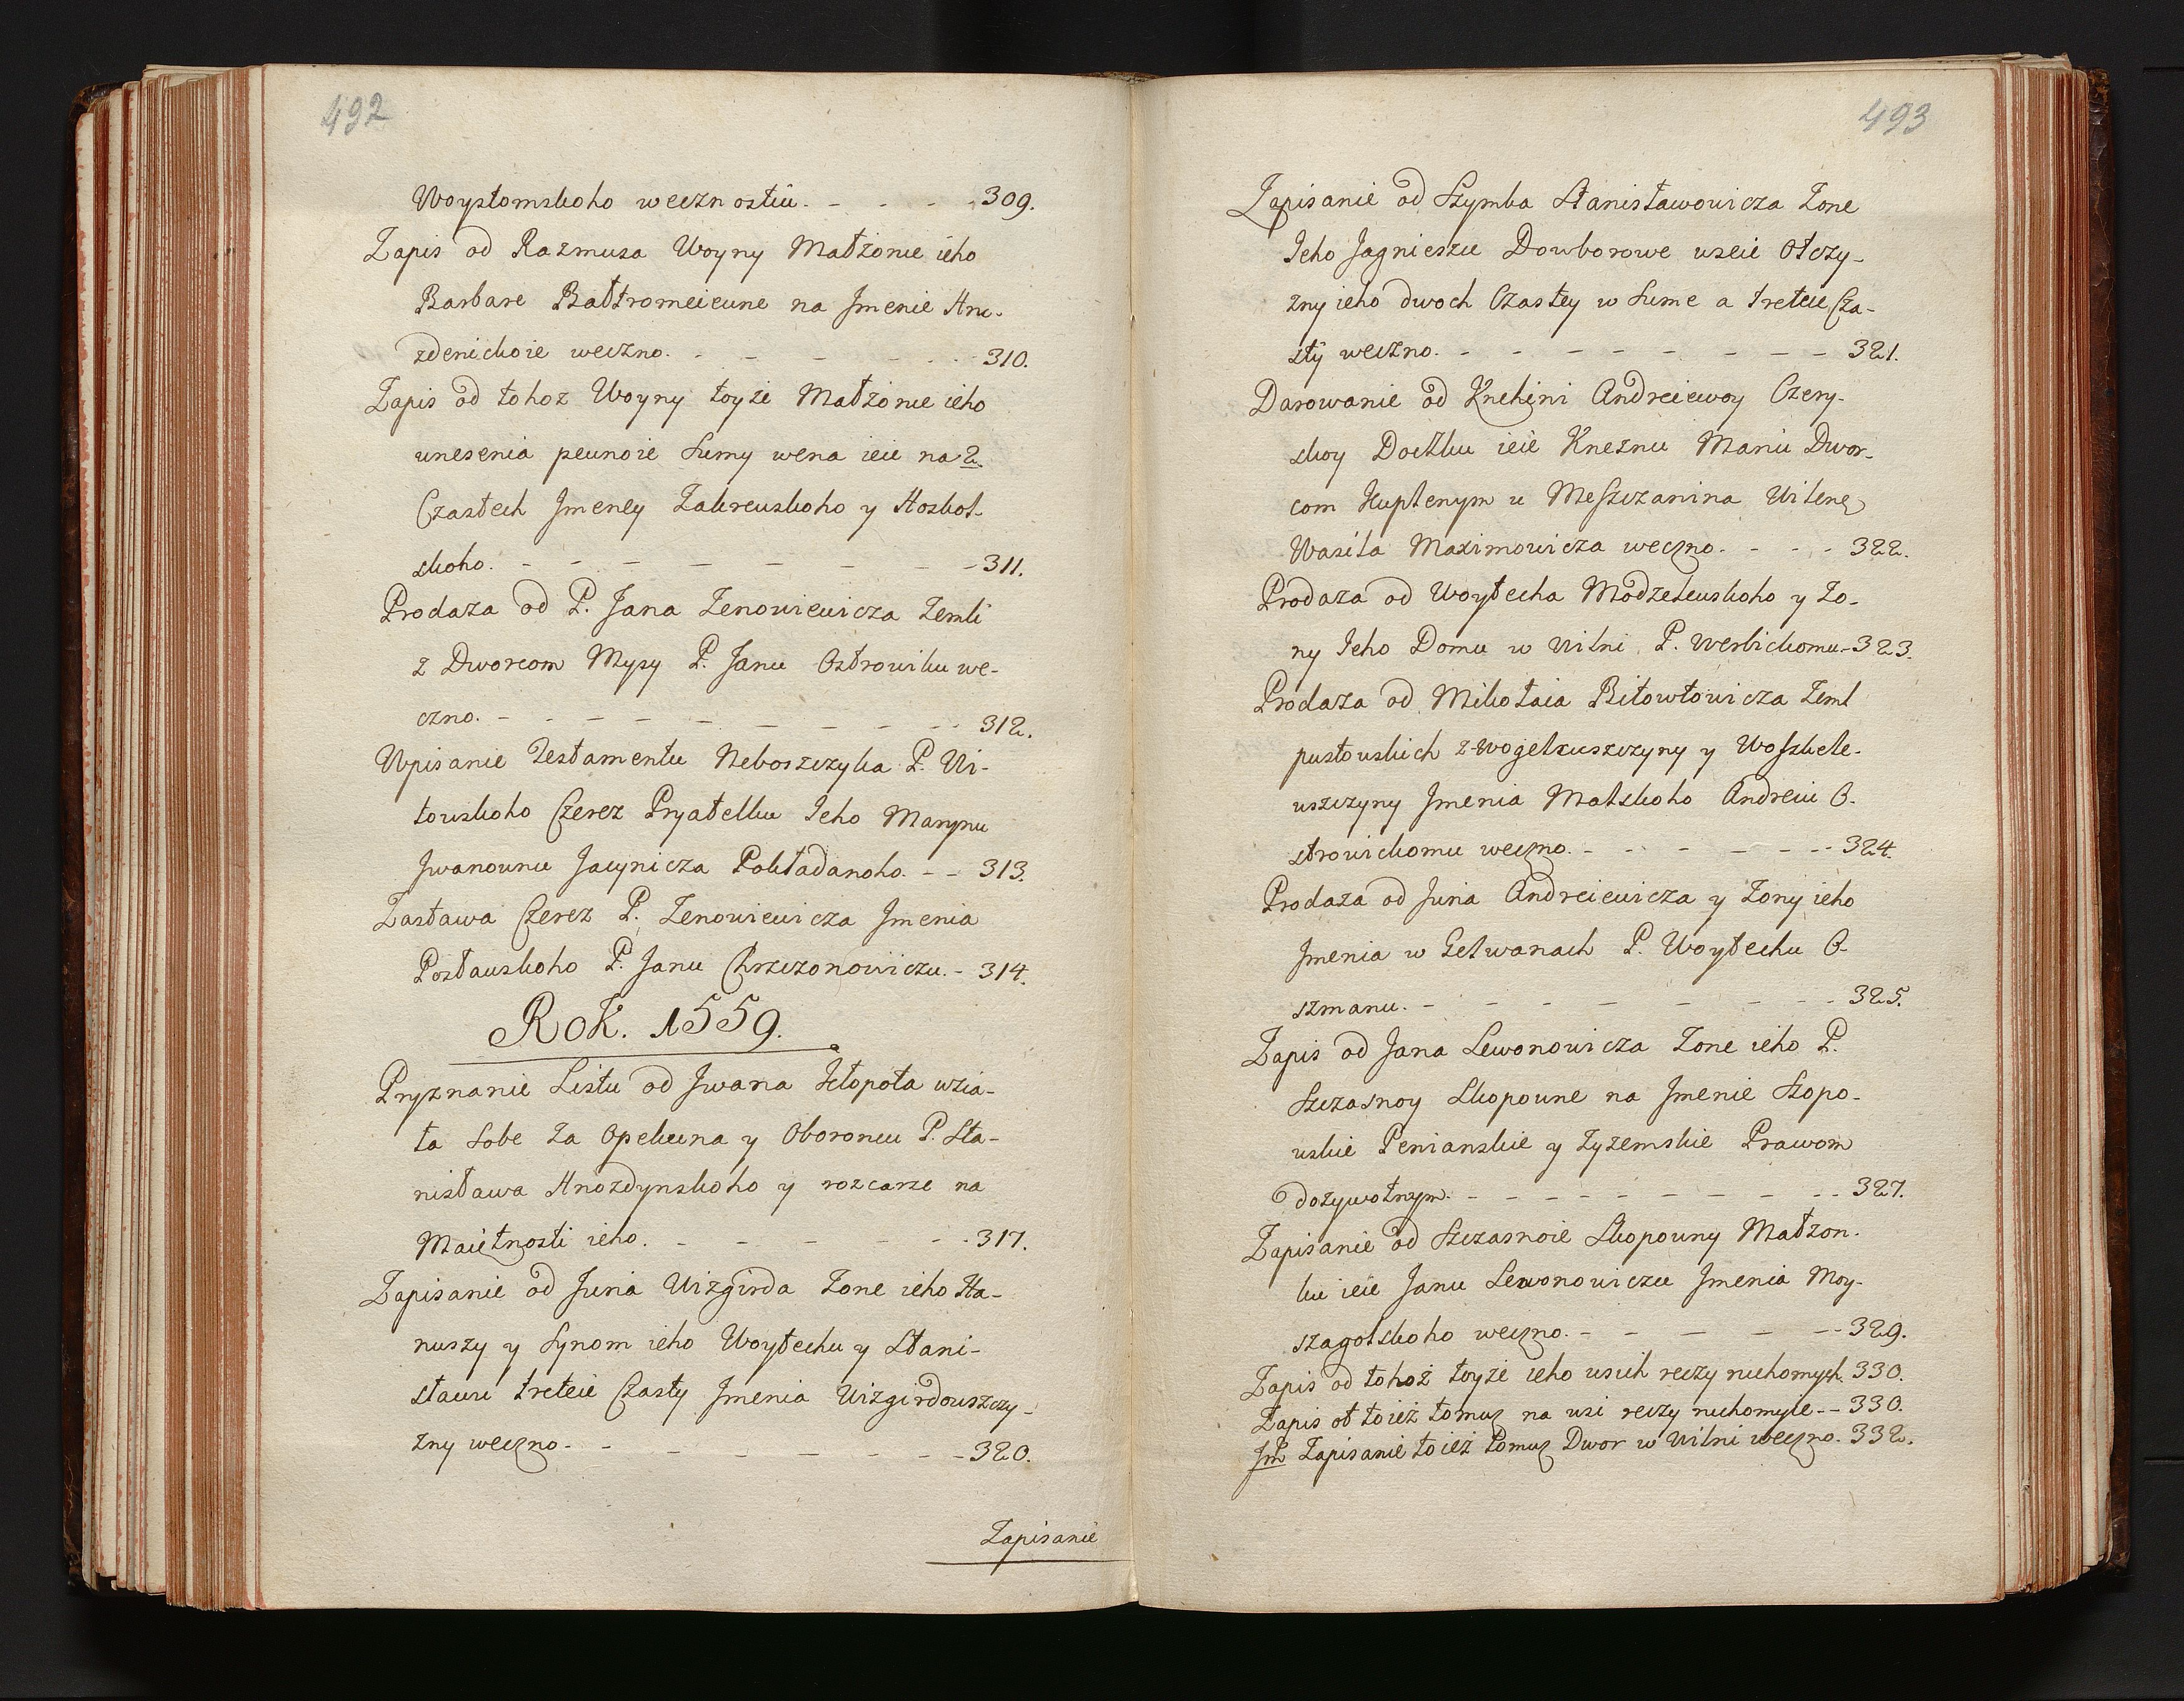 492
Woystomskoho wecznostiu. - - - - 309.
Zapis od Razmusa Woyny Małżonie ieho
Barbare Bałtromeieune na Jmenie Hru-
zdenickoie weczno. - - - - - 310.
Zapis od tohoz Woyny toyże Małżonie ieho
unesenia peunoie Sumy wena ieie na 2.
Czastech Jmeney Zakreuskoho y Hoskot-
skoho. - - - - - - - 311.
Prodaża od P. Jana Zenowiewicza Zemli
z Dworcom Mysy P. Janu Ostrowiku we-
czno. - - - - - - - - 312.
Wpisanie Testamentu Neboszczyka P. Wi-
towskoho Czerez Pryatelku Jeho Marynu
Jwanownu Jacynicza Pokładanoho. - - 313.
Zastawa Czerez P. Zenowiewicza Jmenia
Postauskoho P. Janu Chrszczonowiczu. - 314.
Rok. 1559.
Pryznanie Listu od Jwana Kłopota wzia-
ta Sobe za Opekuna y Oboroncu P. Sta-
nisława Hnozdynskoho y rozcarze na
Maiętnosti ieho. - - - - - 317.
Zapisanie od Juria Wizgirda Żone ieho Ha-
nuszy y Synom ieho Woytechu y Stani-
sławu treteie Czasty Jmenia Wizgirdouszczy-
zny weczno. - - - - - - 320.
Zapisanie
493
Zapisanie od Szymka Stanisławowicza Żone
Jeho Jagnieszce Dowborowe wseie Otczy-
zny ieho dwoch Czastey w Sume a treteie Cza-
sty weczno. - - - - - - - - 321.
Darowanie od Knehini Andreiewoy Czery-
skoy Doczku ieie Kneznu Maniu Dwor-
com Kuplenym u Meszczanina Wilene
Wasila Maximowicza weczno. - - - 322.
Prodaza od Woytecha Modzelewskoho y Żo-
ny Jeho Domu w Wilni P. Werbickomu. - 323.
Prodaża od Mikołaia Bitowtowicza Zeml
pustouskich z Wogelkuszczyny y Woszkele-
uszczyny Jmenia Malskoho Andreiu O-
strowickomu weczno. - - - - - 324.
Prodaża od Juria Andreiewicza y Żony ieho
Jmenia w Gelwanach P. Woytechu O-
szmanu. - - - - - - 325.
Zapis od Jana Lewonowicza Żone ieho P.
Szczasnoy Skopoune na Jmenie Szopo-
uskie Penianskie y Żyżemskie Prawom
dożywotnym. - - - - - - - 327.
Zapisanie od Szczasnoie Skopouny Małżon-
ku ieie Janu Lewonowiczu Jmenia Moy-
szagolskoho weczno. - - - - - 329.
Zapis od tohoż toyże ieho usich reczy ruchomych. 330.
Zapis ot toież tomuz na usi reczy ruchomyie. - - 330.
Jm Zapisanie toież tomuz Dwor w Wilni weczno. 332.